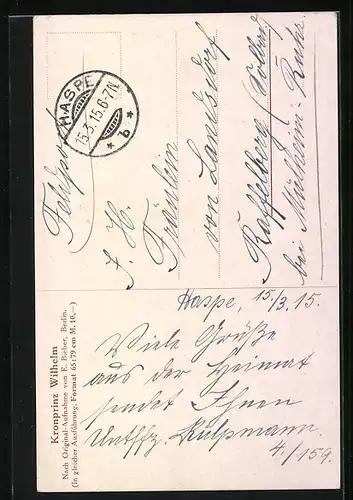 HASPE
15.3.15.6-7N
* b *
Feldpost
I. H.
Fräulein
von Landsdorf
Raffelberg (Solbad)
bei Mülheim-Ruhr.
Kronprinz Wilhelm
Nach Original-Aufnahme von E. Bieber, Berlin.
(In gleicher Ausführung. Format 65:79 cm M. 10,—)
Haspe, 15./3.15.
Viele Grüße
aus der Heimat
sendet Ihnen
Untffz. Kulpmann
4./159.